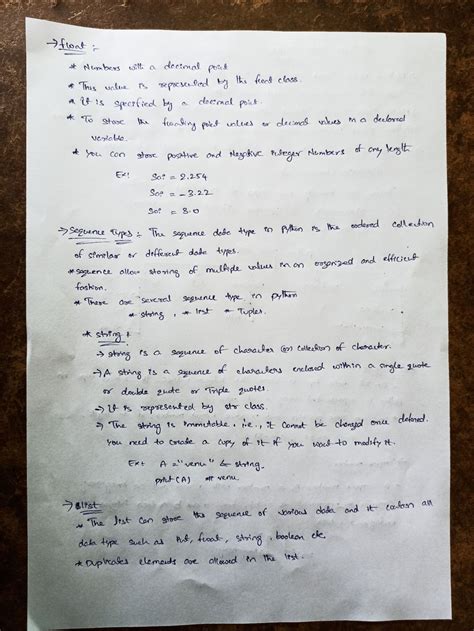 → float :-
* Numbers with a decimal point
* This value is represented by the float class.
* It is specified by a decimal point.
* To store the floating point values or decimal values in a declared
variable.
* You can store positive and Negative integer Numbers of any length
Ex:
Soi = 2.254
Soi = -3.22
Soi = 8.0
→ Sequence Types :- The sequence data type in python is the ordered collection
of similar or different data types.
* sequence allow storing of multiple values in an organized and efficient
fashion.
* There are several sequence type in python
* string, * list * Tuples.
* string :
→ string is a sequence of character (or) collection of character.
→ A string is a sequence of characters enclosed within a single quote
or double quote or Triple quotes
→ It is represented by str class.
→ The string is immutable, i.e., it cannot be changed once defined.
You need to create a copy of it if you want to modify it.
Ex: A = "venu" & string.
print (A) # venu.
→ list
* The list can store the sequence of various data and it contain all
data type such as int, float, string, boolean etc.
* Duplicates elements are allowed in the list.